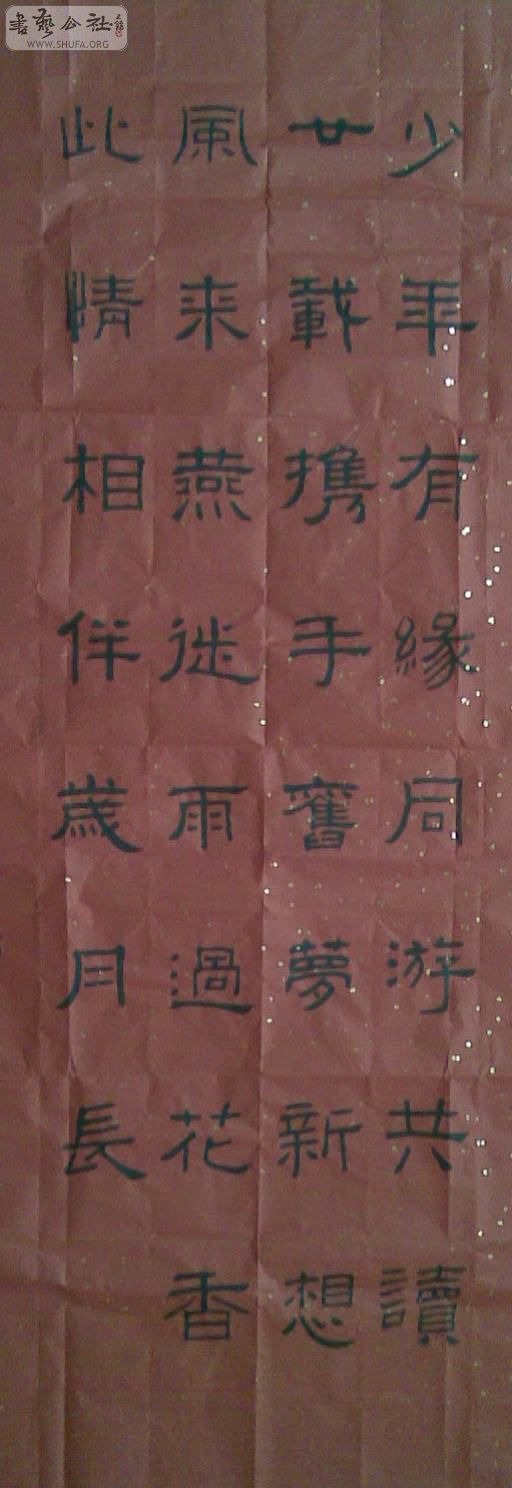 書藝公社
WWW.SHUFA.ORG
少年有緣同游共讀
廿載携手舊夢新想
風来燕迷雨過花香
此情相伴歲月長